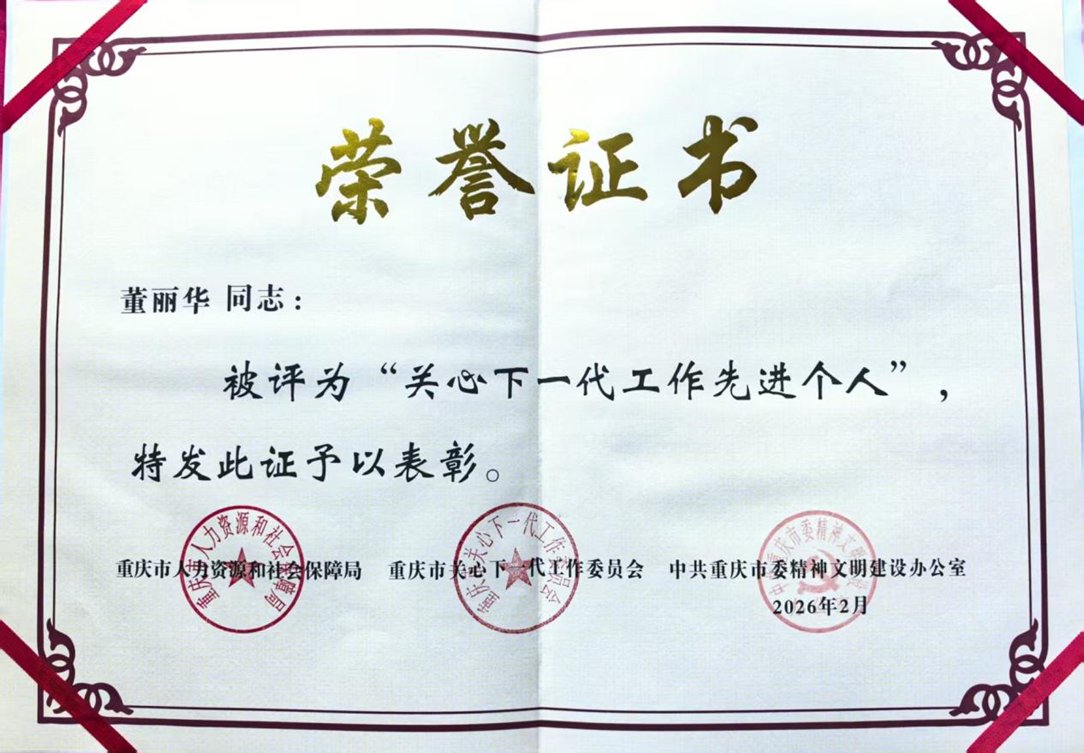 荣誉证书
董丽华 同志：
被评为“关心下一代工作先进个人”，
特发此证予以表彰。
重庆市人力资源和社会保障局 重庆市关心下一代工作委员会 中共重庆市委精神文明建设办公室
2026年2月
重庆市人力资源和社会保障局
重庆市关心下一代工作委员会